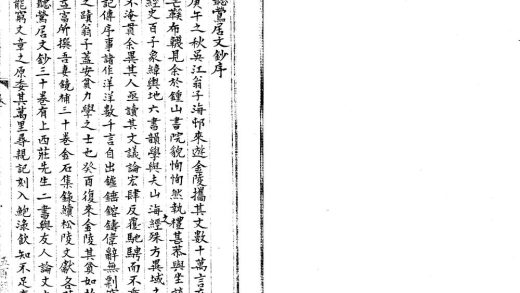 聽鶯居文鈔序
庚午之秋吳江翁子海邨來遊金陵攜其文數十萬言
芒鞵布韈見余於鍾山書院貌恂恂然執禮甚恭與坐
經史百子象緯輿地六書韻學與夫山海經殊方異域之
不淹貫余異其人亟讀其文議論宏肆反覆馳騁而不
記傳序事諸作洋洋數千言自出鑪鎔鑄偉辭無剽
之蹟翁子蓋安貧力學之士也癸酉復來金陵其貧如
益富所撰吾妻鏡補三十卷金石集錄續松陵文獻各
聽鶯居文鈔三十卷有上西莊先生二書與友人論文
能窮文章之原委其萬里尋親記刻入鮑淥飲知不足